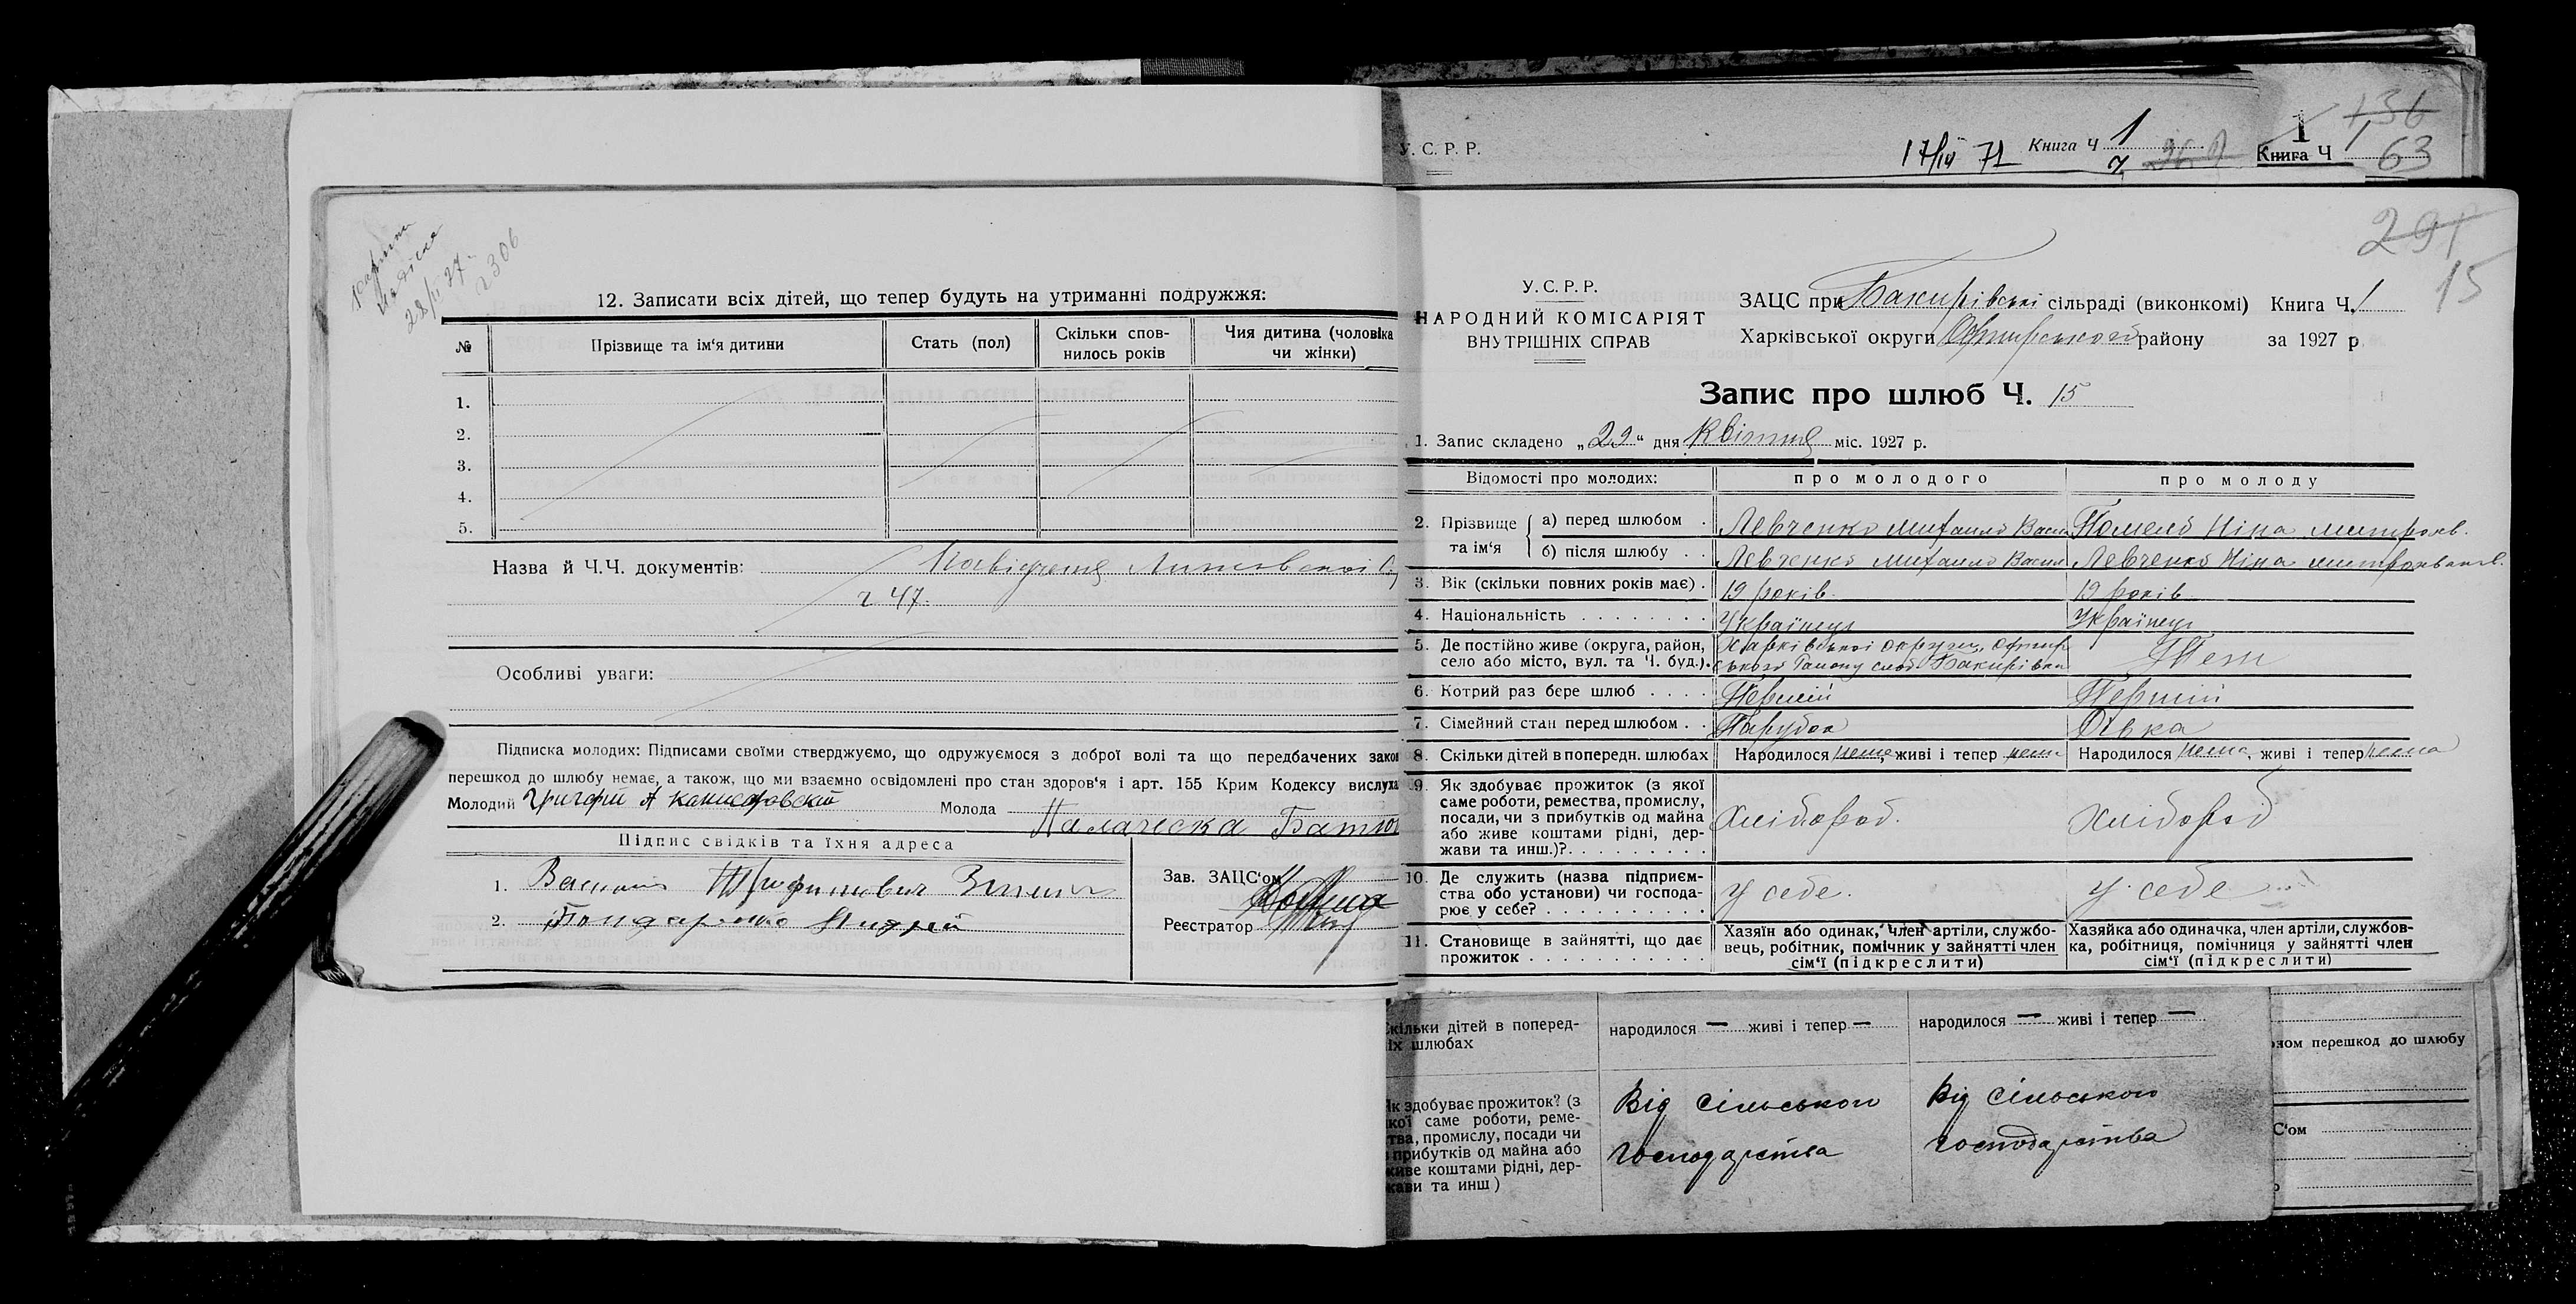 12. Записати всіх дітей, що тепер будуть на утриманні подружжя:
№ Прізвище та ім'я дитини Стать (пол) Скільки сповнилось років Чия дитина (чоловіка чи жінки)
1.
2.
3.
4.
5.
Назва й Ч.Ч. документів:
ч 47.
Особливі уваги:
Підписка молодих: Підписами своїми стверджуємо, що одружуємося з доброї волі та що передбачених закон
перешкод до шлюбу немає, а також, що ми взаємно освідомлені про стан здоров'я і арт. 155 Крим Кодексу вислуха
Молодий Григорій А Молода
Підпис свідків та їхня адреса
1. Василь Трофимович
2. Бондаренко Андрей
Зав. ЗАЦС'ом
Реєстратор
У. С. Р. Р.
17/IV 71 Книга Ч 1
1 136
Книга Ч 1 63
291
15
У. С. Р. Р.
НАРОДНИЙ КОМІСАРІЯТ
ВНУТРІШНІХ СПРАВ
ЗАЦС при Бакирівські сільраді (виконкомі) Книга Ч. 1
Харківської округи Охтирського району за 1927 р
Запис про шлюб Ч. 15
1. Запис складено „29" дня Квітня міс. 1927 р.
Відомості про молодих: про молодого про молоду
2. Прізвище та ім'я
а) перед шлюбом Левченко Михайло Васил Ніна Митроф.
б) після шлюбу Левченко Михайло Васил Левченко Ніна Митрофановн.
3. Вік (скільки повних років має) 19 років. 19 років
4. Національність Українец Українец
5. Де постійно живе (округа, район, Харківської округи, Охтир
село або місто, вул. та Ч. буд.). ського Району слоб Бакирівка Теж
6. Котрий раз бере шлюб Первий Первий
7. Сімейний стан перед шлюбом Парубок Дівка
8. Скільки дітей в попередн. шлюбах Народилося нема, живі і тепер нема Народилося нема, живі і тепер нема
9. Як здобуває прожиток (з якої
саме роботи, ремества, промислу,
посади, чи з прибутків од майна Хлібороб. Хлібороб
або живе коштами рідні, дер-
жави та инш.)?
10. Де служить (назва підприєм-
ства обо установи) чи господа- у себе. у себе
рює у себе?
11. Становище в зайнятті, що дає
прожиток
Хазяїн або одинак, член артіли, службо-
вець, робітник, помічник у зайнятті член
сім'ї (підкреслити)
Хазяйка або одиначка, член артіли, службов-
ка, робітниця, помічниця у зайнятті член
сім'ї (підкреслити)
кільки дітей в поперед-
іх шлюбах
народилося — живі і тепер —
народилося — живі і тепер —
Як здобуває прожиток? (з
кої саме роботи, реме-
тва, промислу, посади чи
прибутків од майна або
живе коштами рідні, дер-
жави та инш )
Від сільського
господарства
Від сільського
господарства
ном перешкод до шлюбу
С'ом